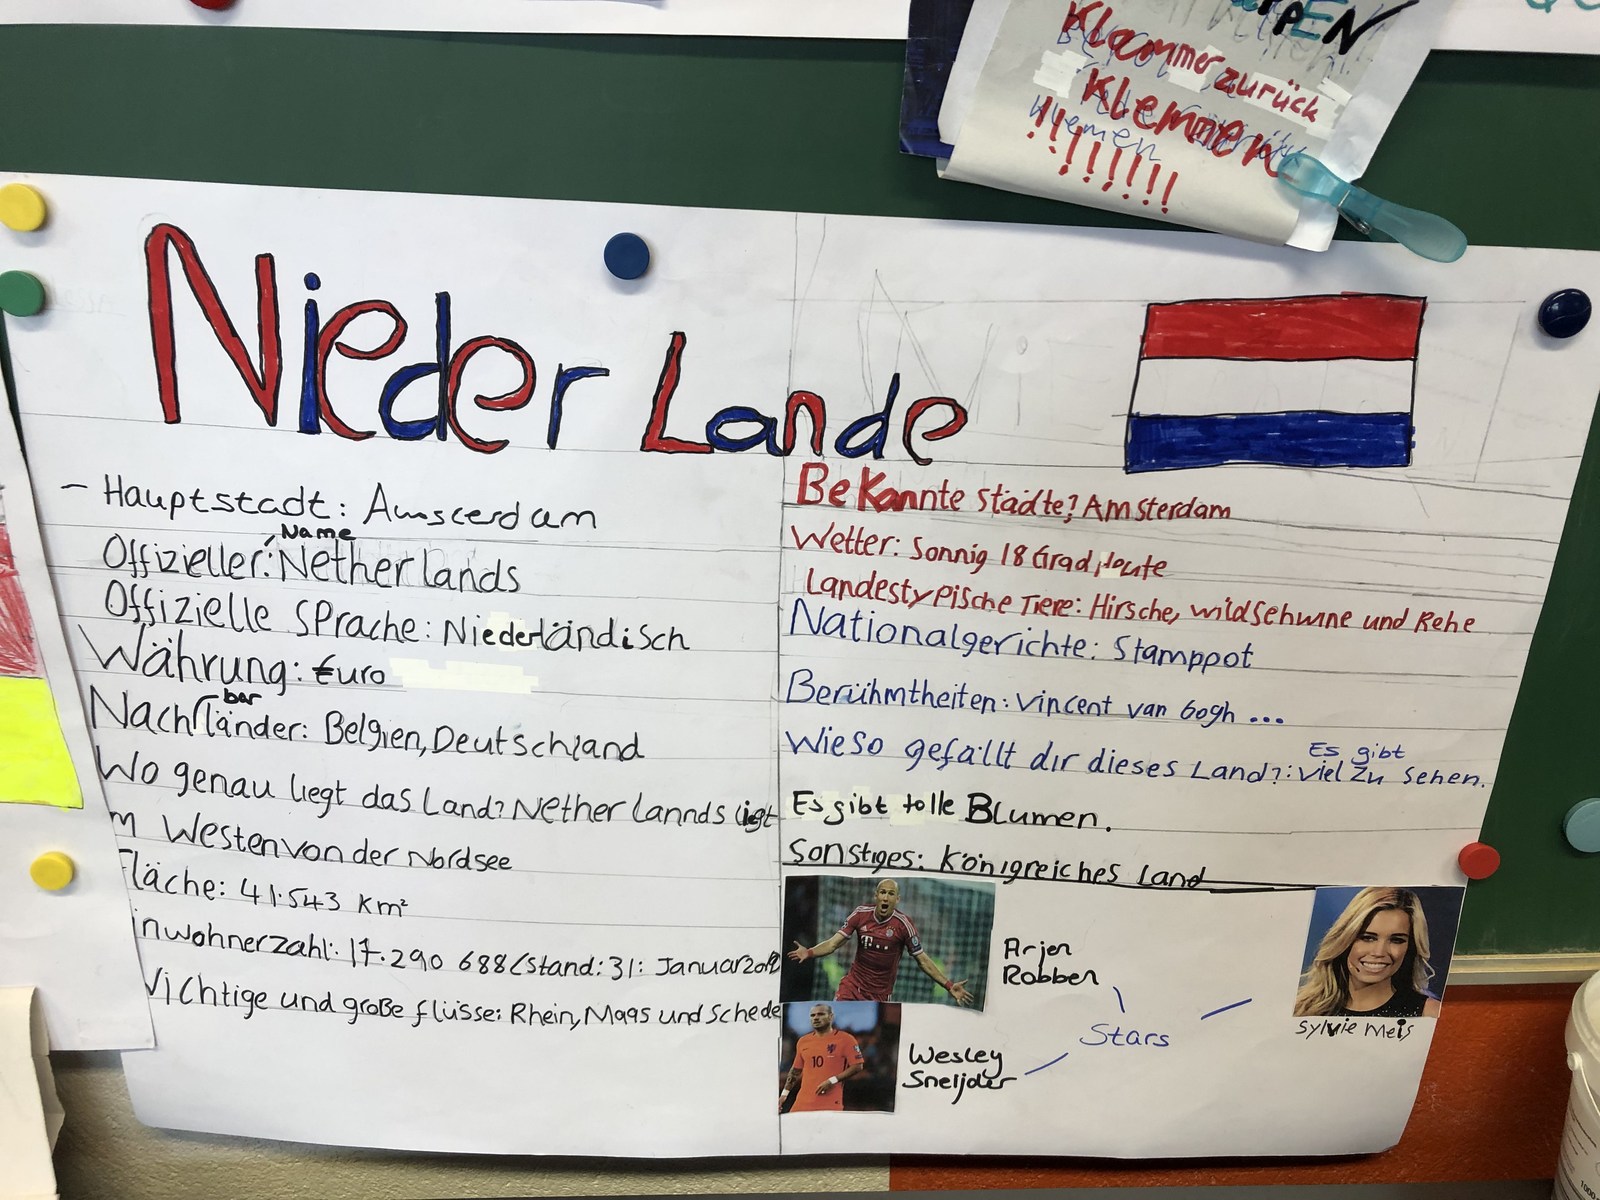 PPEN
Klammer zurück
Klemmen
!!!!!!!!
NiederLande
– Hauptstadt: Amsterdam
Name
Offizieller: Netherlands
Offizielle Sprache: Niederländisch
Währung: €uro
bar
Nachländer: Belgien, Deutschland
Wo genau liegt das Land? Netherlannds ligt
m Westen von der Nordsee
läche: 41.543 km²
inwohnerzahl: 17.290 688 (Stand: 31: Januar
ichtige und große flüsse: Rhein, Maas und Schede
Bekannte städte? Amsterdam
Wetter: Sonnig 18 Grad, Heute
Landestypische Tiere: Hirsche, wildschwine und Rehe
Nationalgerichte: Stamppot
Berühmtheiten: Vincent van Gogh ...
Es gibt
Wieso gefällt dir dieses Land?: viel zu sehen.
Es gibt tolle Blumen.
Sonstiges: Königreiches Land
Arjen
Robben
Stars
Wesley
Sneijder
Sylvie Meis
T
10